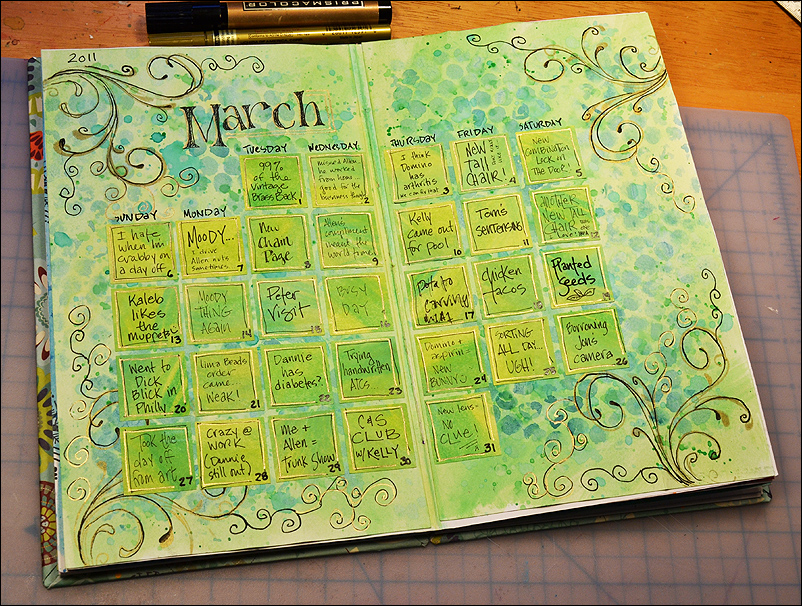 PRISMACOLOR
2011
March
TUESDAY
WEDNESDAY
THURSDAY
FRIDAY
SATURDAY
99%
of the
vintage
Brass Book
1
missed Allen
he worked
from home
good for the
business though
2
I think
Domino
has
arthritis
3
New
Tall
CHAIR!
4
NEW
COMBINATION
LOCK ON
THE DOOR!
5
SUNDAY
MONDAY
I hate
when I'm
crabby on
a day off
6
MOODY...
I drive
Allen nuts
sometimes.
7
New
Chain
Page
8
Allen's
compliment
meant the
world to me
9
Kelly
came out
for pool
10
Tom's
SENTENSING
11
ANOTHER
NEW TALL
CHAIR
12
Kaleb
likes
the
Muppets!
13
MOODY
THING
AGAIN
14
Peter
Visit
15
BUSY
DAY
16
potato
17
chicken
tacos
18
Planted
Seeds
19
Went to
Dick
Blick in
Philly
20
Lima Beads
order
came.
Weak!
21
Dannie
has
diabetes?
22
Trying
handwritten
ATCs
23
Domino +
aspirin =
NEW
BUNNY!
24
SORTING
ALL DAY...
UGH!
25
Borrowing
Jons
camera
26
Took the
day off
from art
27
Crazy @
WORK
(Dannie
still out)
28
Me +
Allen =
trunk show
29
C&S
CLUB
w/KELLY
30
New lens =
NO
CLUE!
31